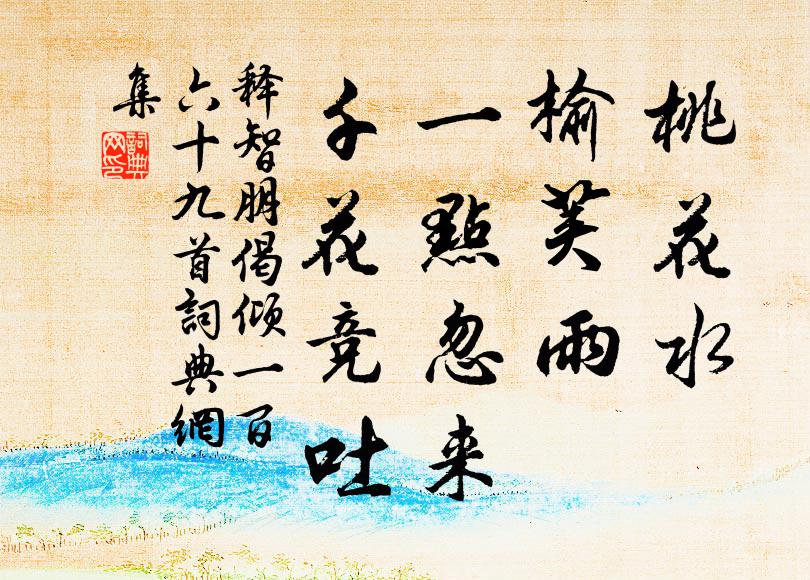 桃花水
榆荚雨
一點忽来
千花竞吐
释智朋偈倾一百
六十九首詞典網
集
詞典網印